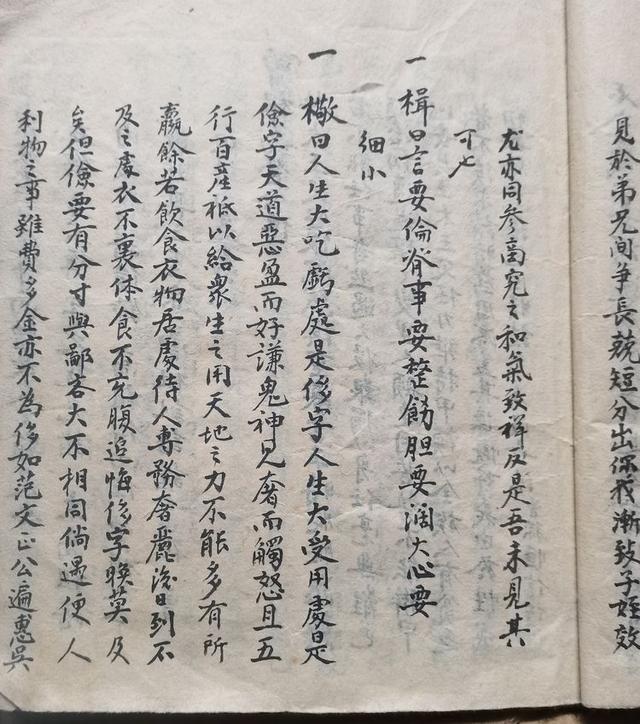 見於弟兄間爭長競短分出你我漸致子姪效
尤亦同參商究之和氣致祥反是吾未見其
可也
一 楫曰言要倫脊事要整飭胆要濶大心要
細小
一 檝曰人生大吃虧處是侈字人生大受用處是
儉字天道惡盈而好謙鬼神見奢而觸怒且五
行百產祗以給衆生之用天地之力不能多有所
贏餘若飲食衣物居處待人專務奢麗後日到不
及之處衣不裹体食不充腹追悔侈字嗟莫及
矣但儉要有分寸與鄙吝大不相同倘遇便人
利物之事雖費多金亦不為侈如范文正公遍惠吳